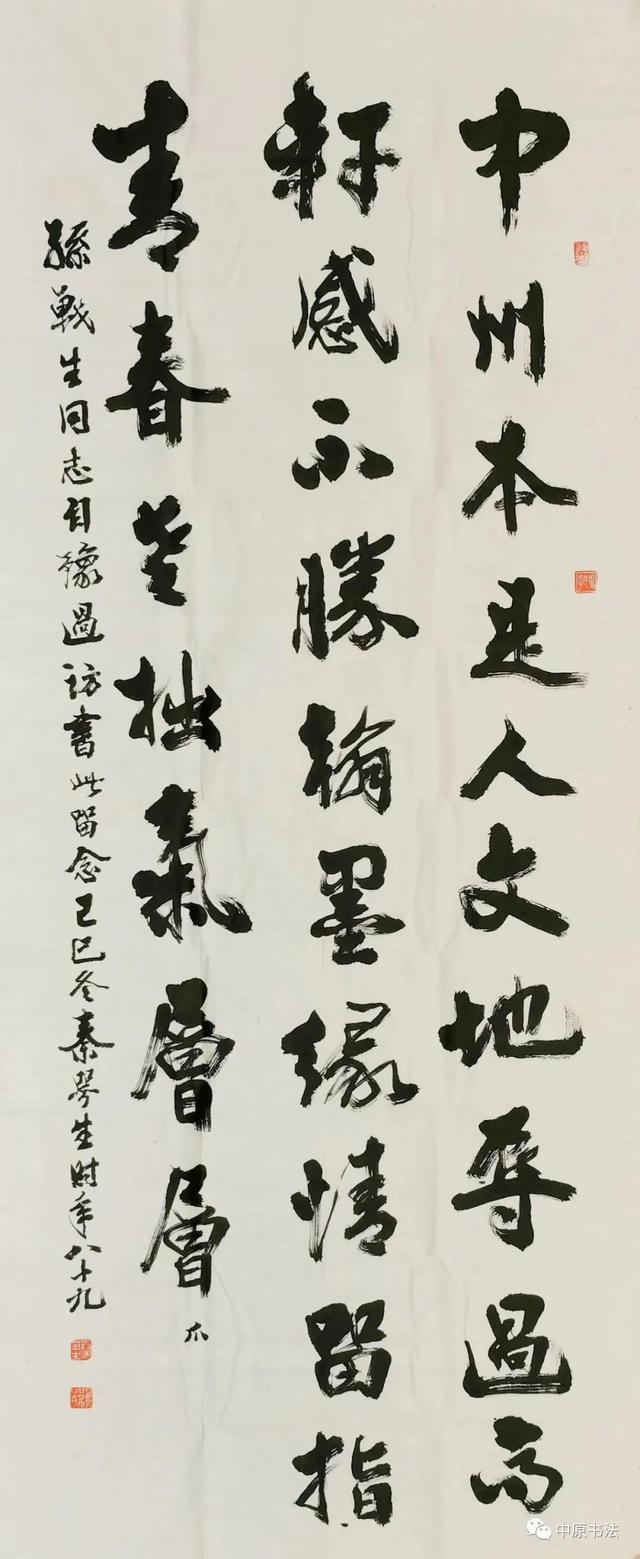 中州本是人文地辱過高
軒感不勝翰墨緣情留指
青春笑拙氣層層
爪
孫戰生同志自豫過訪書此留念己巳冬秦咢生時年八十九
中原书法